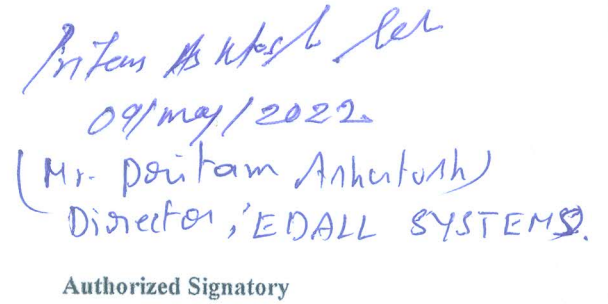 Pritam Ashutosh
09/may/2022.
(Mr. Pritam Ashutosh)
Director, EDALL SYSTEMS.
Authorized Signatory